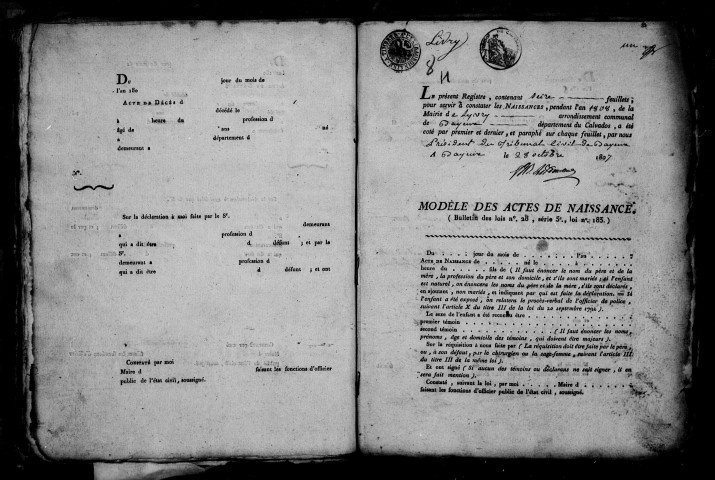 DU jour du mois de
l'en 180
ACTE DE DÉCÈS d
décédé le
à heure du profession d
âgé de ans né
à département d
demeurant à
N°.
Sur la déclaration à moi faite par le Sr.
demeurant
à profession d
qui a dit être d défunt ; et par le
Sr.
demeurant à profession d
qui a dit être d défunt ; et ont
Constaté par moi
Maire d faisant les fonctions d'officier
public de l'état civil, soussigné.
Livry
8 N
un
LE présent Registre, contenant seize feuillets ;
pour servir à constater les NAISSANCES, pendant l'an 1808, de la
Mairie de Livry arrondissement communal
de Bayeux département du Calvados, a été
coté par premier et dernier, et paraphé sur chaque feuillet, par nous
Président du Tribunal Civil de Bayeux
A Bayeux le 28 octobre 1807
MODÈLE DES ACTES DE NAISSANCE.
( Bulletin des lois n°. 28, série 3e, loi n°. 185. )
Du . . . jour du mois de . . . . . . . l'an . . . .
ACTE DE NAISSANCE de . . . . . . . né le . . . . . à . . . .
heure du . . . . . fils de ( Il faut énoncer le nom du père et de la
mère, la profession du père et son domicile, et s'ils sont mariés : si l'enfant
est naturel, on énoncera les noms du père et de la mère, s'ils sont déclarés,
en ajoutant, non mariés, et indiquant par qui est faite la déclaration. — Si
l'enfant a été exposé, on relatera le procès-verbal de l'officier de police,
suivant l'article X du titre III de la loi du 20 septembre 1792 ).
Le sexe de l'enfant a été reconnu être . . . . . . . . . .
premier témoin . . . . . . . . . . . . . . . . . .
second témoin . . . . . . . . . . . ( Il faut énoncer les noms,
prénoms, âge et domicile des témoins, qui doivent être majeurs ).
Sur la réquisition à nous faite par ( La réquisition doit être faite par le père,
ou, à son défaut, par le chirurgien ou la sage-femme, suivant l'article III
du titre III de la même loi ).
Et ont signé ( Si aucun des témoins ou déclarans ne sait signer, il en
sera fait mention ).
Constaté, suivant la loi, par moi . . . . Maire d . . . . . .
faisant les fonctions d'officier public de l'état civil, soussigné.